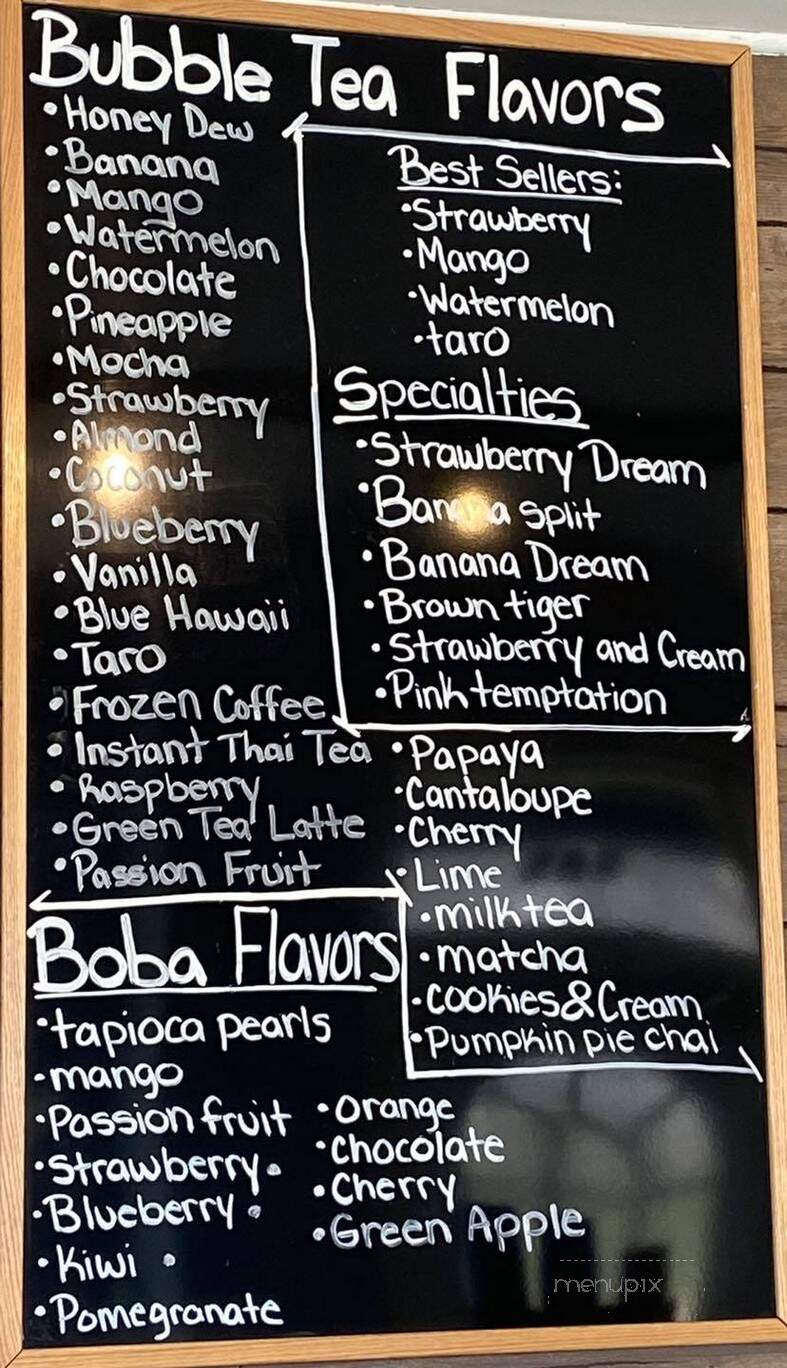 Bubble Tea Flavors
• Honey Dew
• Banana
• Mango
• Watermelon
• Chocolate
• Pineapple
• Mocha
• Strawberry
• Almond
• Coconut
• Blueberry
• Vanilla
• Blue Hawaii
• Taro
• Frozen Coffee
• Instant Thai Tea
• Raspberry
• Green Tea Latte
• Passion Fruit
Best Sellers:
• Strawberry
• Mango
• Watermelon
• taro
Specialties
• Strawberry Dream
• Banana split
• Banana Dream
• Brown tiger
• Strawberry and Cream
• Pink temptation
• Papaya
• Cantaloupe
• Cherry
• Lime
• milk tea
• matcha
• cookies & Cream
• Pumpkin pie chai
Boba Flavors
• tapioca pearls
• mango
• Passion fruit
• Strawberry •
• Blueberry •
• Kiwi •
• Pomegranate
• Orange
• Chocolate
• Cherry
• Green Apple
menupix